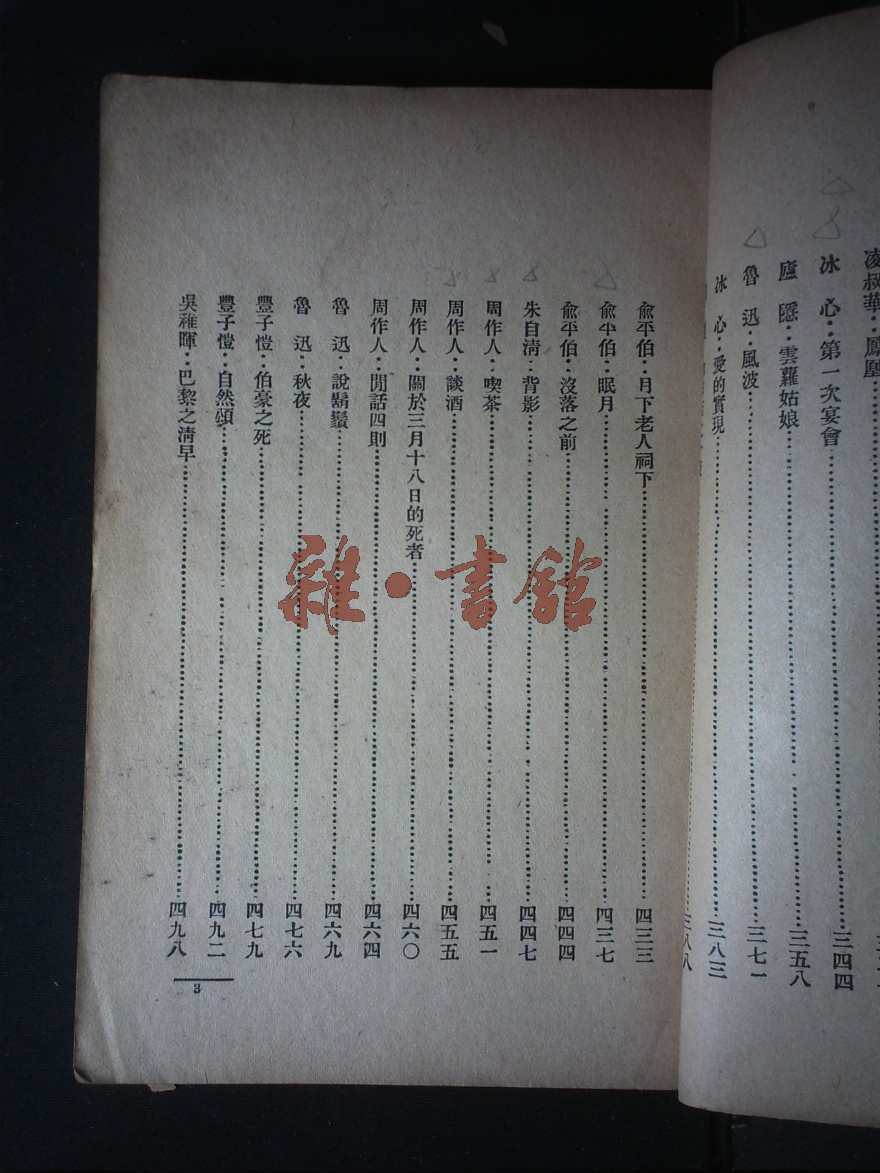 凌叔華‥鳳凰
冰　心‥第一次宴會‥‥三四四
廬　隱‥雲蘿姑娘‥‥三五八
魯　迅‥風波‥‥三七一
冰　心‥愛的實現‥‥三八三
三八八
兪平伯‥月下老人祠下‥‥四三三
兪平伯‥眠月‥‥四三七
兪平伯‥沒落之前‥‥四四四
朱自淸‥背影‥‥四四七
周作人‥喫茶‥‥四五一
周作人‥談酒‥‥四五五
周作人‥關於三月十八日的死者‥‥四六〇
周作人‥閒話四則‥‥四六四
魯　迅‥說鬍鬚‥‥四六九
魯　迅‥秋夜‥‥四七六
豐子愷‥伯豪之死‥‥四七九
豐子愷‥自然頌‥‥四九二
吳稚暉‥巴黎之淸早‥‥四九八
3
雜·書館